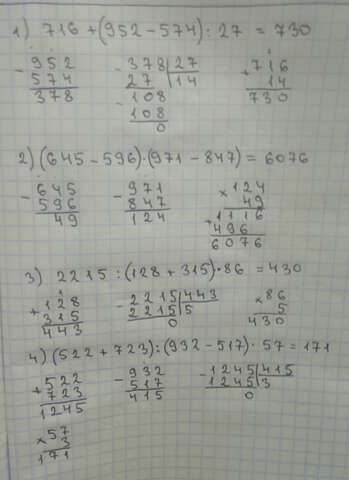 1) 716 + (952 - 574) : 27 = 730
- 952 - 378 | 27 + 716
574 27 | 14 14
378 - 108 730
108
0
2) (645 - 596) · (971 - 847) = 6076
- 645 - 971 × 124
596 847 49
49 124 + 1116
496
6076
3) 2215 : (128 + 315) · 86 = 430
+ 128 - 2215 | 443 × 86
315 2215 | 5 5
443 0 430
4) (522 + 723) : (932 - 517) · 57 = 171
+ 522 - 932 - 1245 | 415
723 517 1245 | 3
1245 415 0
× 57
3
171